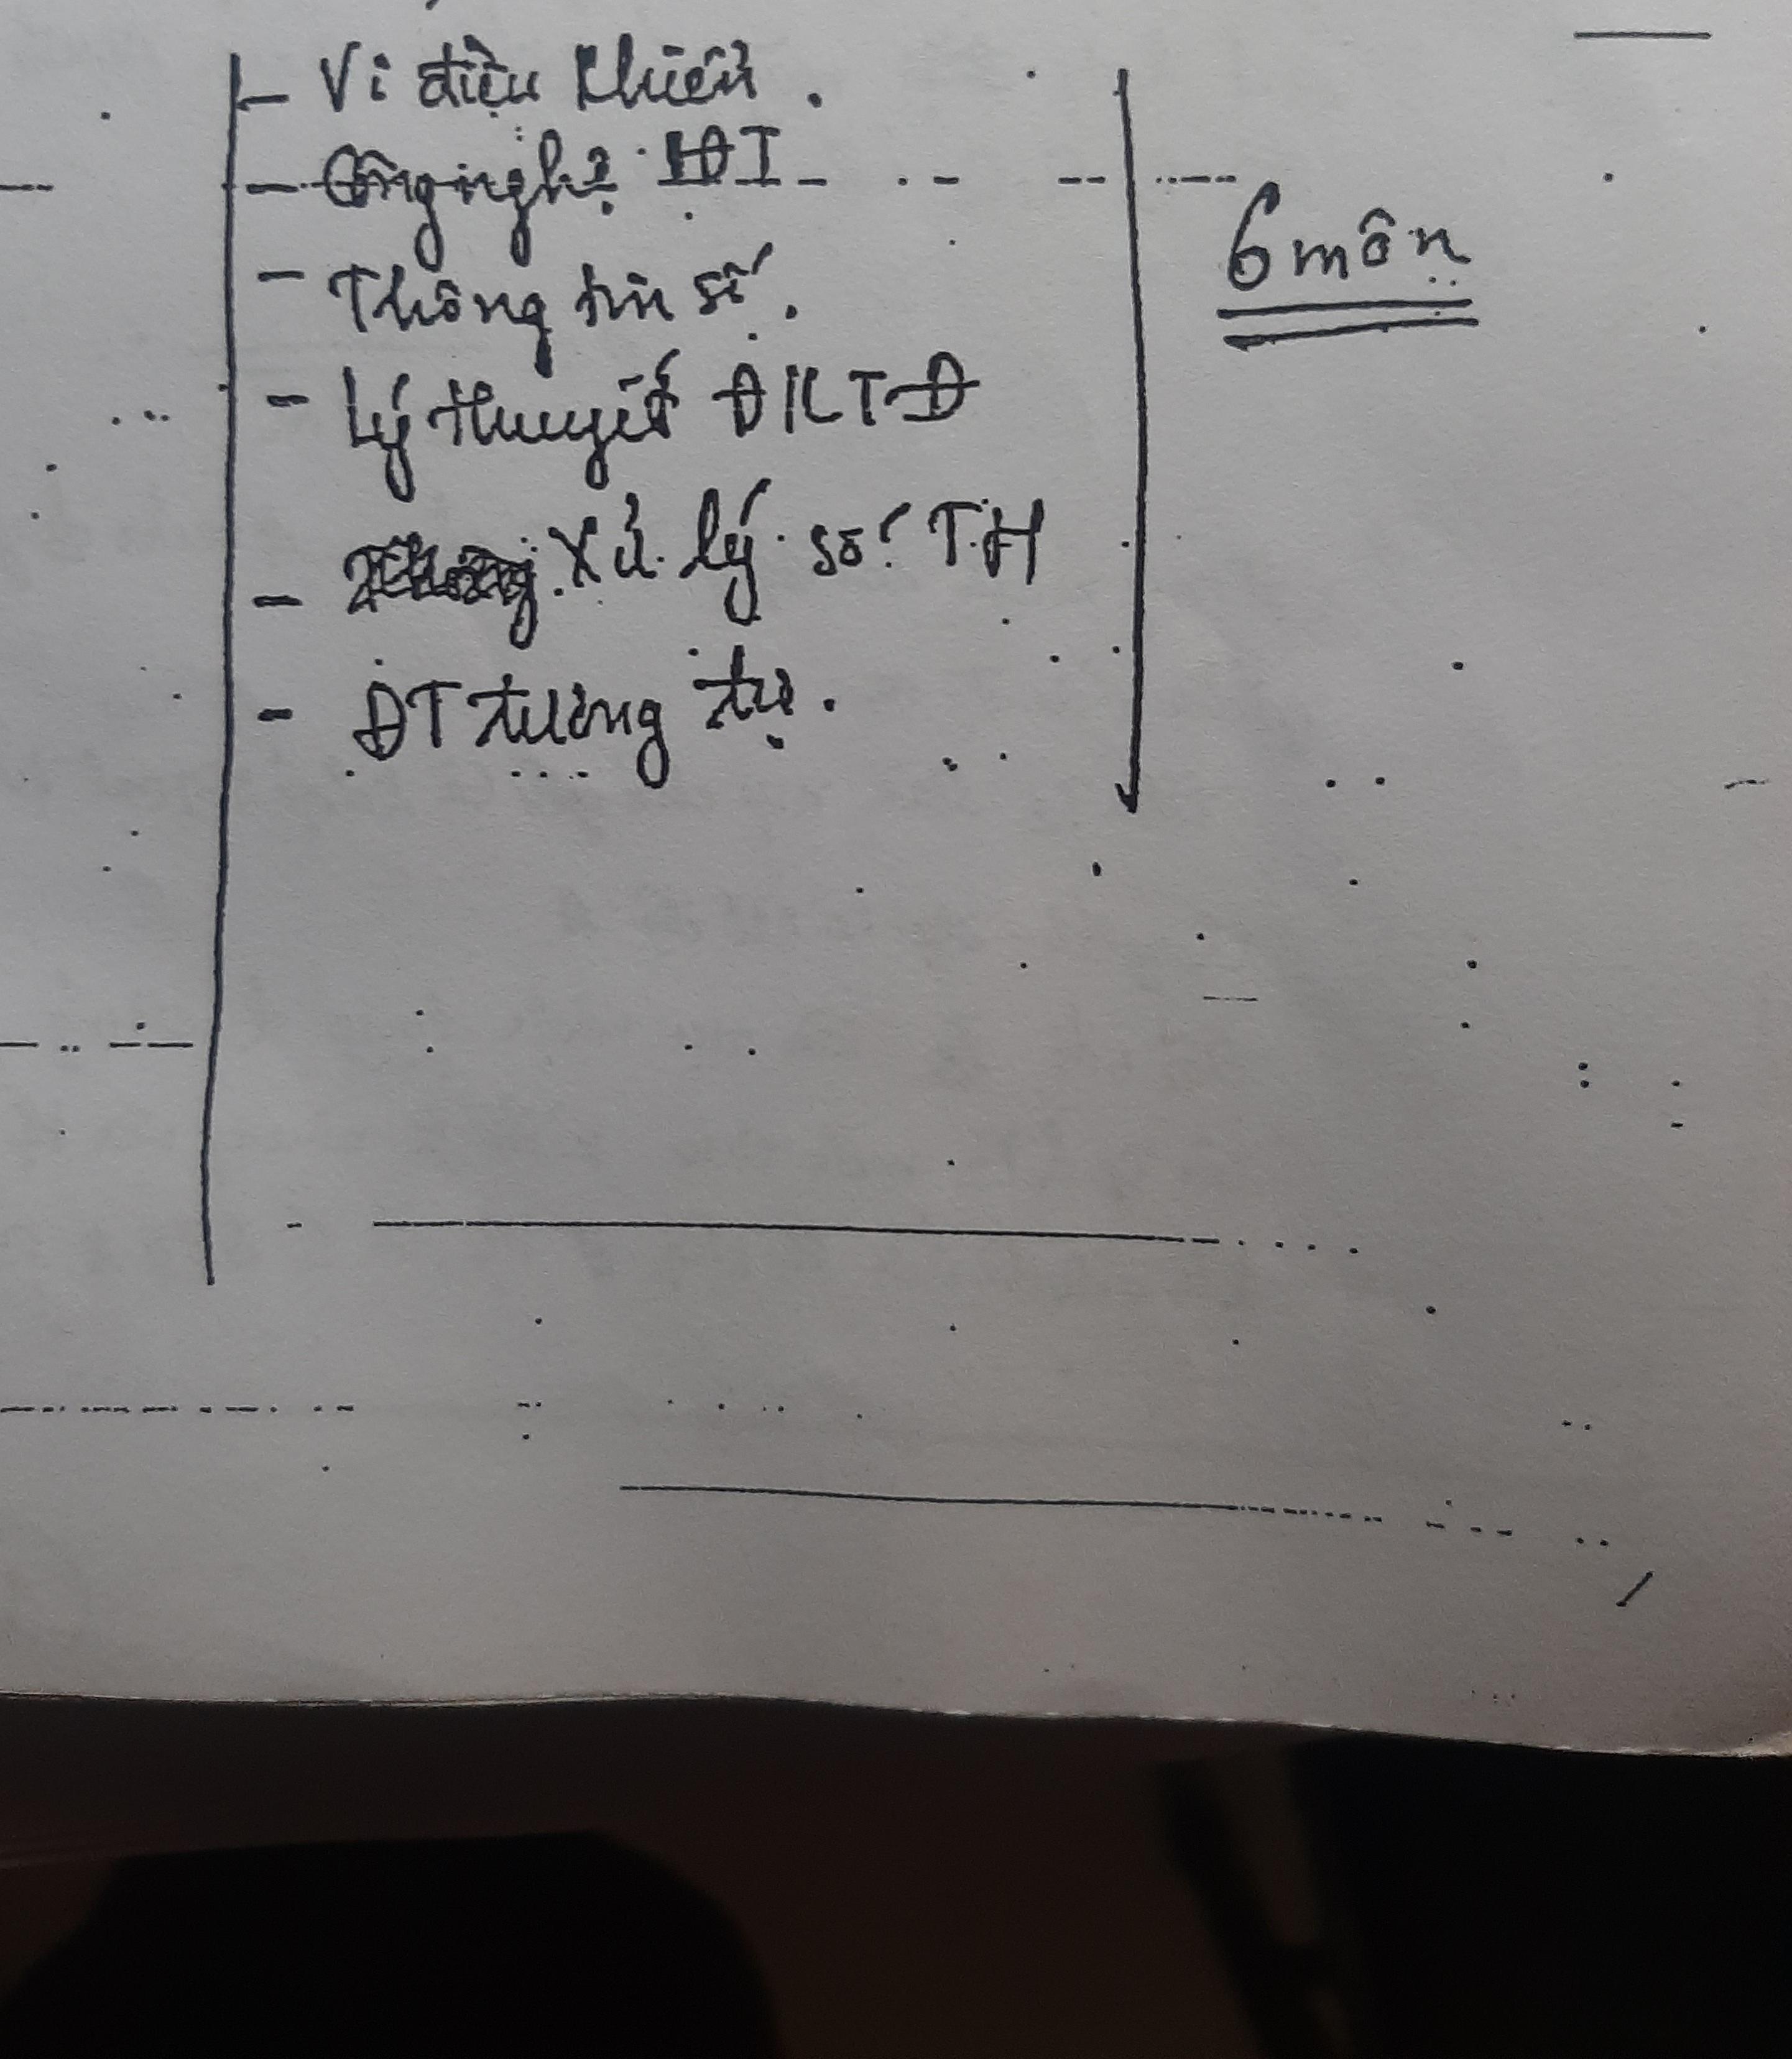 - Vi điều khiển.
- Công nghệ
- Thông tin số.
- Lý thuyết ĐKTĐ
- Xử lý số TH
- ĐT tương tự.
6 môn